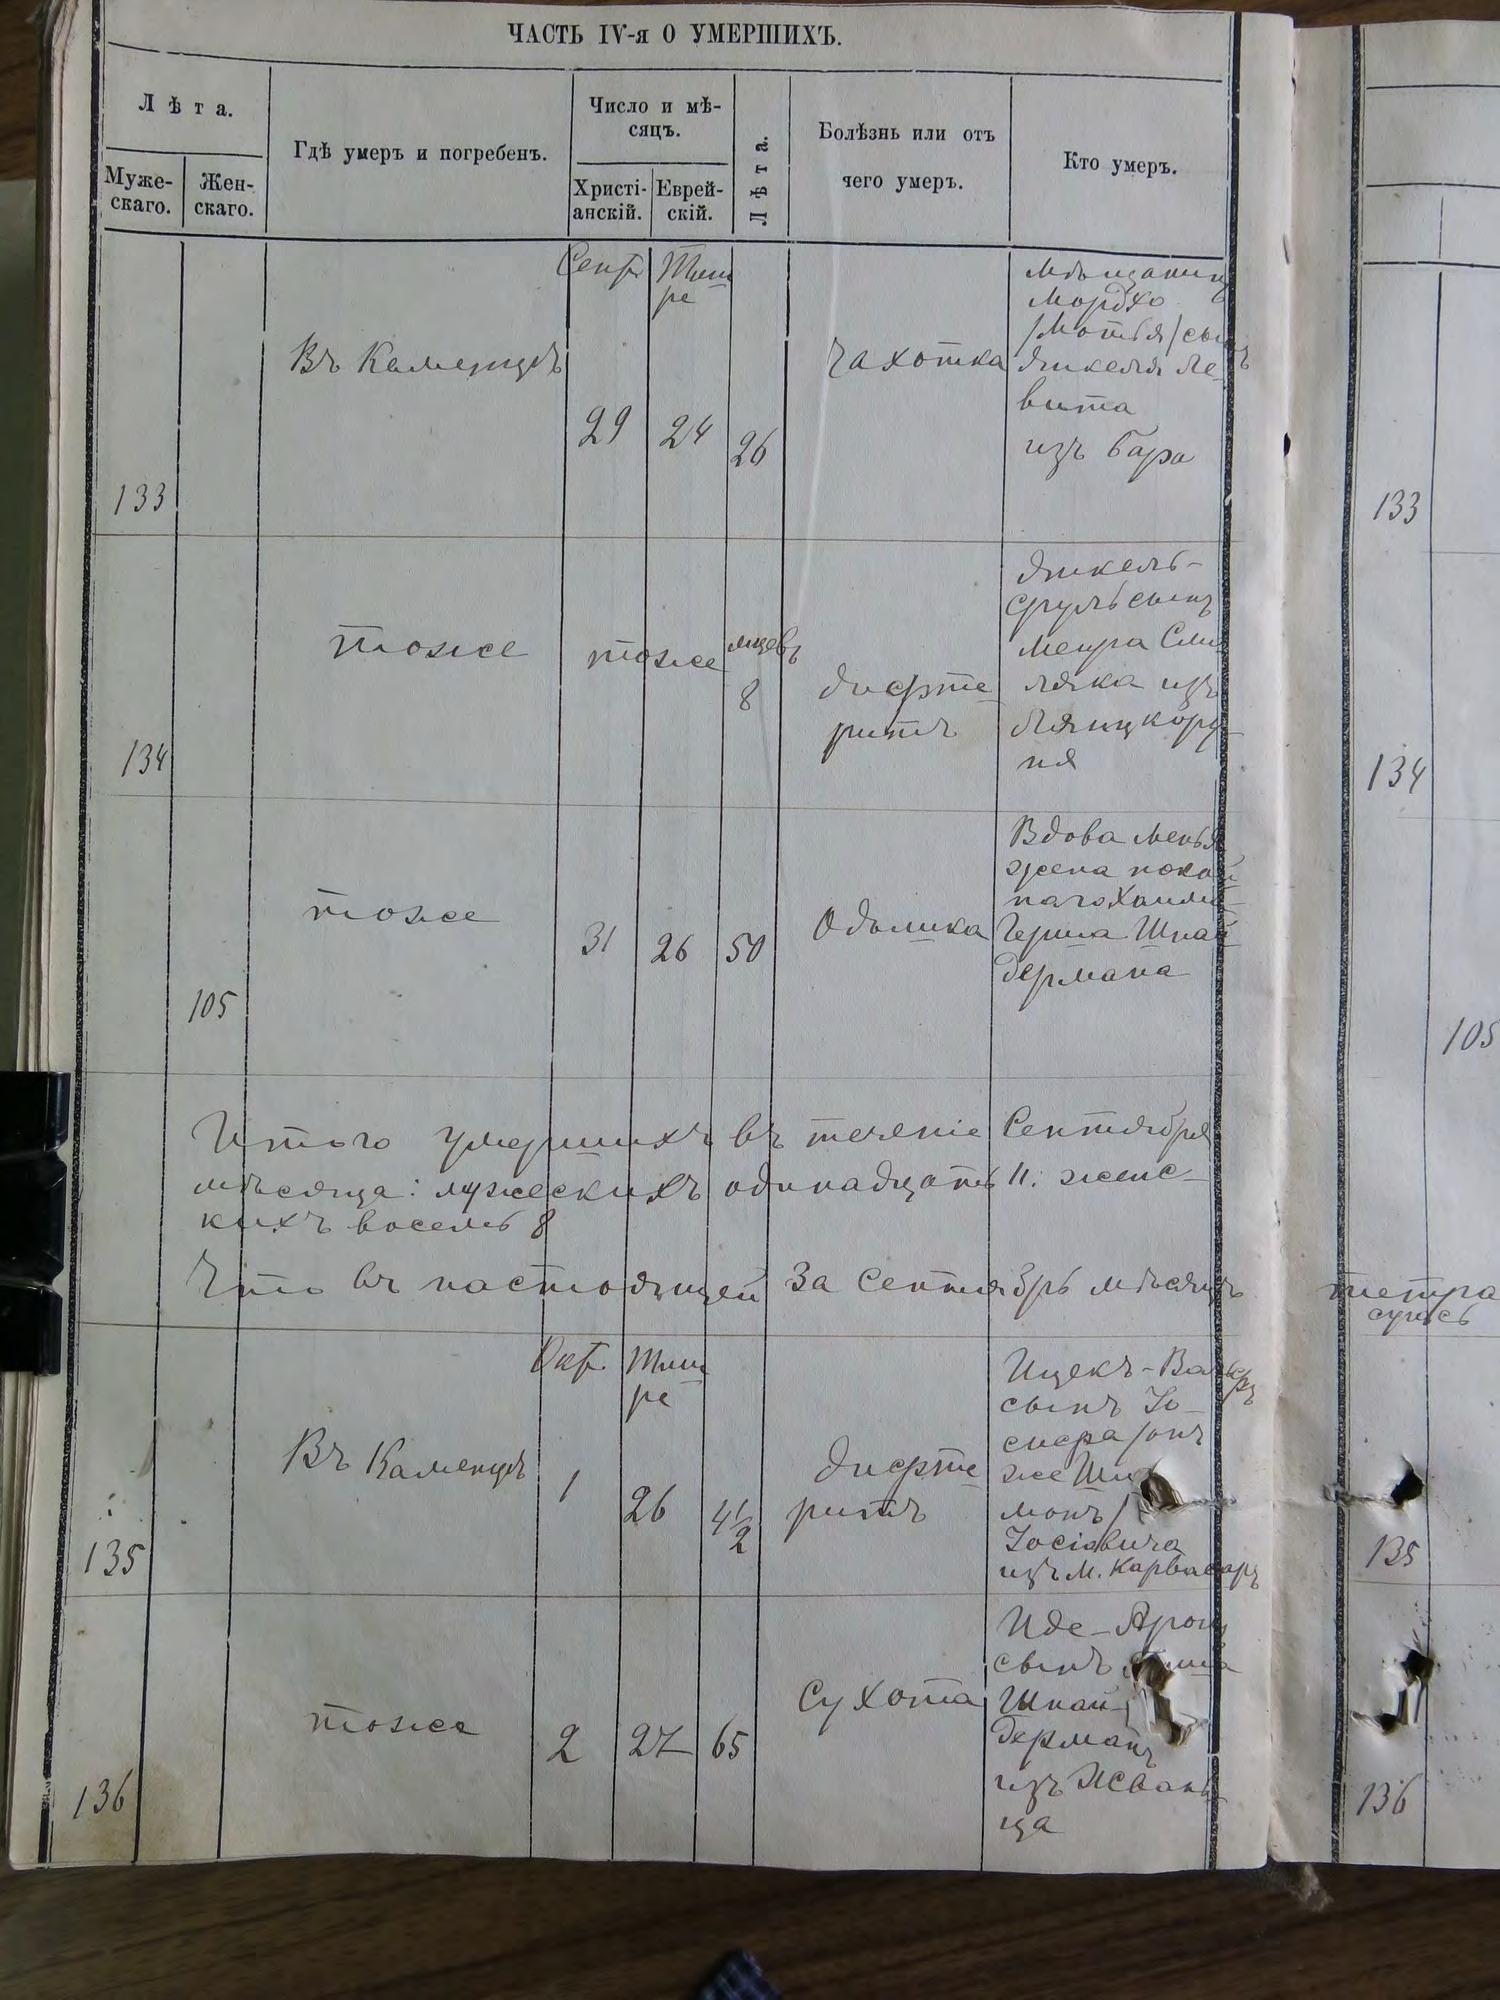 ЧАСТЬ IV-я О УМЕРШИХЪ.
Лѣта.
Муже-
скаго.
Жен-
скаго.
Гдѣ умеръ и погребенъ.
Число и мѣ-
сяцъ.
Христі-
анскій.
Еврей-
скій.
Лѣта.
Болѣзнь или отъ
чего умеръ.
Кто умеръ.
133
Въ Каменцѣ
Сент.
29
Тиш
ре
24
26
Чахотка
Мѣщанинъ
Мордко
/Мотья/ сынъ
Янкеля Ле-
вита
изъ Бара
134
тоже
тоже
мцевъ
8
дифте
ритъ
Янкель-
Сруль сынъ
Меира Смо
ляка изъ
Лянцкору-
ня
105
тоже
31
26
50
Одышка
Вдова Менья
жена покой
наго Хаима-
Герша Шнай
дермана
Итого умершихъ въ теченіе Сентября
мѣсяца: мужескихъ одинадцать 11. женс-
кихъ восемь 8
Что въ настоящей за Сентябрь мѣсяцъ
135
Въ Каменцѣ
Окт.
1
Тиш
ре
26
4 1/2
дифте
ритъ
Ицекъ-
сынъ Іо-
сифа /онъ
же Ши
монъ/
Іосіовича
изъ м. Карвасаръ
136
тоже
2
27
65
Сухота
Иде-Аронъ
сынъ
Шнай-
дерманъ
изъ Жван-
ца
133
134
105
тетра
сулсь
135
136